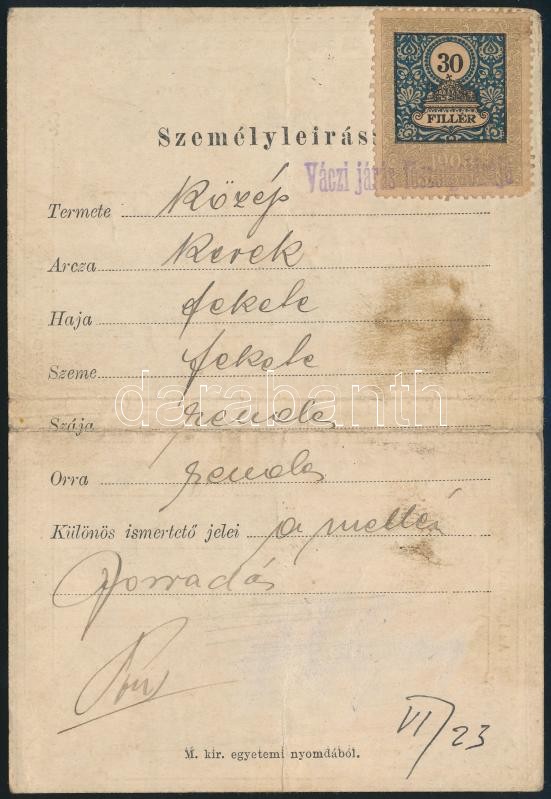 30
FILLÉR
Személyleirás
Váczi járás
Termete közép
Arcza kerek
Haja fekete
Szeme fekete
darabanth
Szája rendes
Orra rendes
Különös ismertető jelei a mellén
forradás
VI/23
M. kir. egyetemi nyomdából.